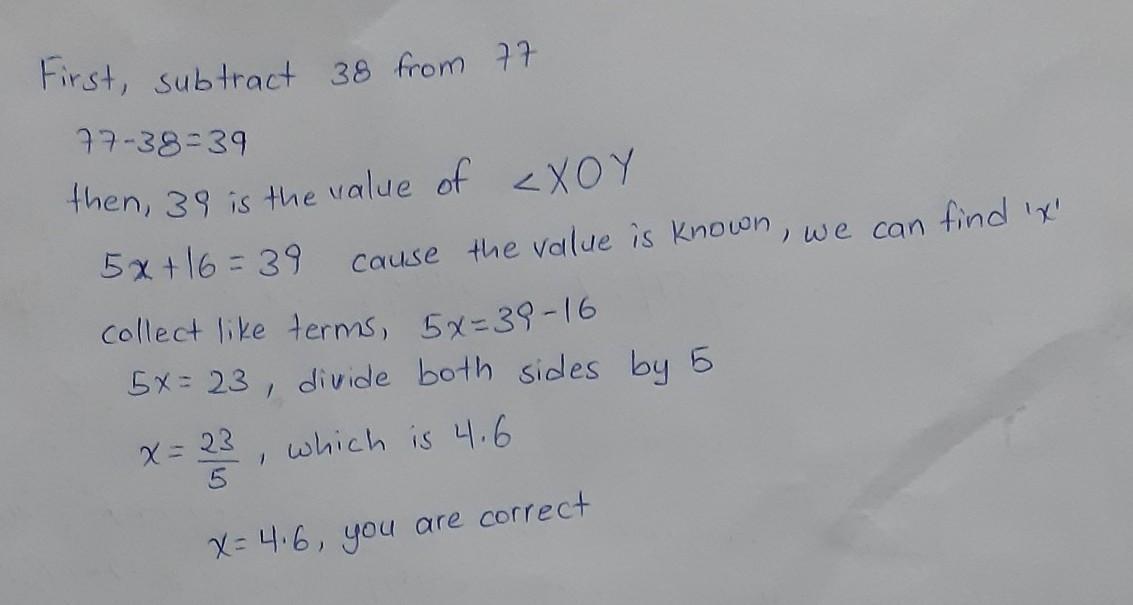 First, subtract 38 from 77
77-38=39
then, 39 is the value of <XOY
5x+16=39 cause the value is known, we can find 'x'
collect like terms, 5x=39-16
5x=23, divide both sides by 5
x=23/5, which is 4.6
x=4.6, you are correct